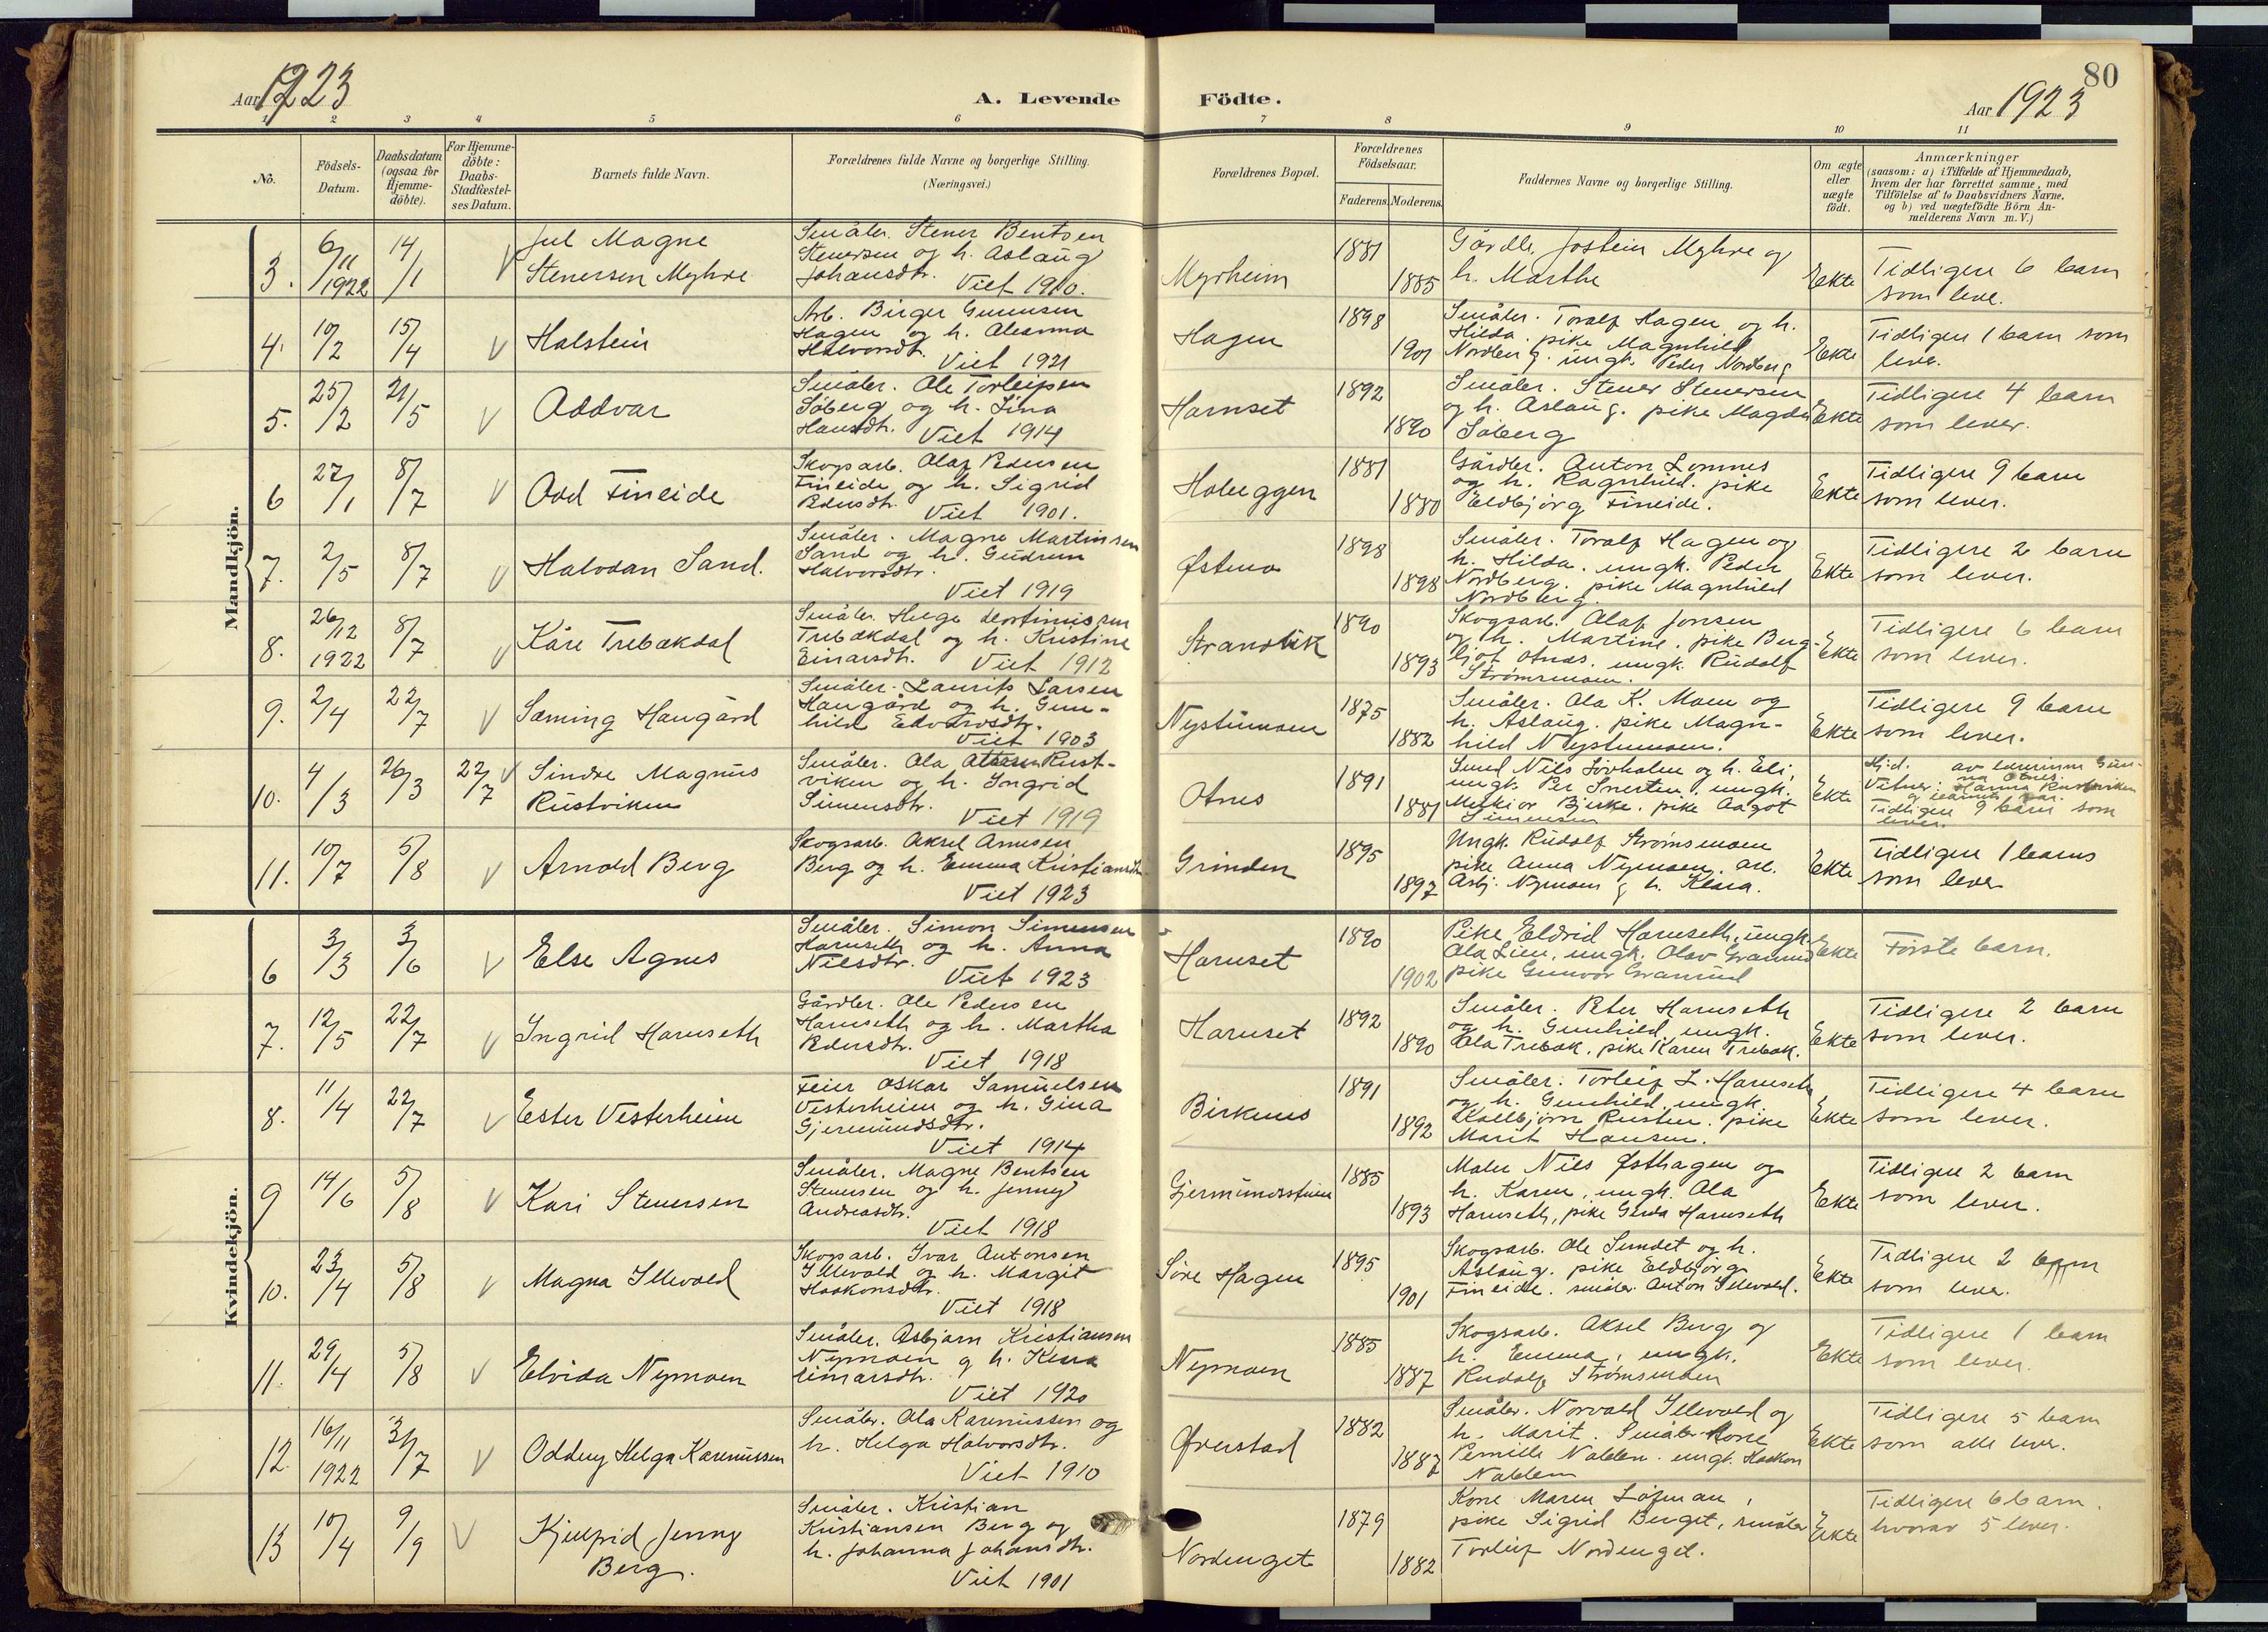 80
Aar 1923
A. Levende Födte.
Aar 1923
1 2 3 4 5 6 7 8 9 10 11
No.
Födsels-Datum.
Daabsdatum (ogsaa for Hjemme-döbte).
For Hjemme-döbte: Daabs-Stadfæstel-ses Datum.
Barnets fulde Navn.
Forældrenes fulde Navne og borgerlige Stilling.
(Næringsvei.)
Forældrenes Bopæl.
Forældrenes Födselsaar.
Faderens. Moderens.
Faddernes Navne og borgerlige Stilling.
Om ægte eller uægte födt.
Anmærkninger
(saasom: a) i Tilfælde af Hjemmedaab, hvem der har forrettet samme, med Tilföielse af to Daabsvidners Navne, og b) ved uægtefödte Börn An-melderens Navn m. V.)
Mandkjön.
3. 6/11 1922 14/1 V Jul Magne Stenersen Myhre
Småbr. Stener Bentsen
Stenersen og h. Aslaug
Johansdtr. Viet 1910.
Myrheim 1881 1885
Gårdbr. Jostein Myhre og
h. Marthe
Ekte
Tidligere 6 barn
som leve.
4. 10/2 15/4 V Halstein
Arb. Birger Gunnusen
Hagen og h. Aleanna
Halvorsdt. Viet 1921
Hagen 1898 1901
Småbr. Toralf Hagen og h.
Hilda. pike Magnhild
Nordberg. ungk. Peder Nordberg
Ekte
Tidligere 1 barn som
lever.
5. 25/2 21/5 V Oddvar
Småbr. Ole Torleifsen
Söberg og h. Lina
Hansdtr. Viet 1914
Harnset 1892 1890
Småbr. Stener Stenersen
og h. Aslaug. pike Magda
Söberg
Ekte
Tidligere 4 barn
som lever.
6 27/1 8/7 V Odd Fineide
Skogsarb. Olaf Pedersen
Fineide og h. Sigrid
Pedersdtr. Viet 1901.
Hobeggen 1881 1880
Gårdbr. Anton Lomnes
og h. Ragnhild. pike
Eldbjørg Fineide.
Ekte
Tidligere 9 barn
som lever.
7. 2/5 8/7 V Halvdan Sand.
Småbr. Magne Martinsen
Sand og h. Gudrun
Halvorsdtr.
Viet 1919
Østmo 1898 1898
Småbr. Toralf Hagen og
h. Hilda. ungk. Peder
Nordberg. pike Magnhild
Nordberg.
Ekte
Tidligere 2 barn
som lever.
8. 26/12 1922 8/7 V Kåre Trebakdal
Småbr. Helge
Trebakdal og h. Kristine
Einarsdtr. Viet 1912
Strandvik 1890 1893
Skogsarb. Olaf Jonsen
og h. Martine. pike Berg-
ljot Otnes. ungk. Rudolf
Strømsmoen.
Ekte
Tidligere 6 barn
som lever.
9. 2/4 22/7 V Sæming Haugård
Småbr. Laurits Larsen
Haugård og h. Gun-
hild Edvardsdtr.
Viet 1903
Nystumoen 1875 1882
Småbr. Ola K. Moen og
h. Aslaug. pike Magn-
hild Nystumoen.
Ekte
Tidligere 9 barn
som lever.
10. 4/3 26/3 22/7 V Sindre Magnus Rustviken
Småbr. Ola Rust-
viken og h. Ingrid
Simensdtr.
Viet 1919
Otnes 1891 1881
Smed Nils Lövholen og h. Eli,
ungk. Per Snerten, ungk.
Melkior Bjerke. pike Aagot
Simensen
Ekte
Hjd. av lærerinne Gun-
na Otnes.
Vitner: Hanna Rustviken
Tidligere 9 barn som
lever.
11. 10/7 5/8 V Arnold Berg
Skogsarb. Aksel Arnesen
Berg og h. Emma Kristiansdtr
Viet 1923
Grinden 1895 1897
Ungk. Rudolf Strømsmoen
pike Anna Nymoen. arb.
Asbj. Nymoen g h. Klara.
Ekte
Tidligere 1 barns
som lever
Kvindekjön.
6 3/3 3/6 V Else Agnes
Småbr. Simon Simensen
Harnseth og h. Anna
Nilsdtr.
Viet 1923
Harnset 1890 1902
Pike Eldrid Harnseth, ungk.
Ola Lien, ungk. Olav Granrud
pike Gunvor Granrud
Ekte
Første barn.
7. 12/5 22/7 V Ingrid Harnseth
Gårdbr. Ole Pedersen
Harnseth og h. Martha
Pedersdtr.
Viet 1918
Harnset 1892 1890
Småbr. Peter Harnseth
og h. Gunhild, ungk.
Ola Trebak. pike Karen Trebak.
Ekte
Tidligere 2 barn
som lever.
8. 11/4 22/7 V Ester Vesterheim
Feier Oskar Samuelsen
Vesterheim og h. Gina
Gjermundsdtr.
Viet 1914
Birkenes 1891 1892
Småbr. Torleif L. Harnseth
og h. Gunhild. ungk.
Kolbjørn Rusten. pike
Marit Hansen.
Ekte
Tidligere 4 barn
som lever.
9 14/6 5/8 V Kari Stenersen
Småbr. Magne Bentsen
Stenersen og h. Jenny
Andreasdtr.
Viet 1918
Gjermundsstuen 1885 1893
Maler Nils Østhagen og
h. Karen, ungk. Ola
Harnseth, pike Gerda Harnseth
Ekte
Tidligere 2 barn
som lever.
10. 23/4 5/8 V Magna Illevold
Skogsarb. Ivar Antonsen
Illevold og h. Margit
Haakonsdtr.
Viet 1918
Söre Hagen 1895 1901
Skogsarb. Ole Sundet og h.
Aslaug. pike Eldbjørg
Fineide. småbr. Anton Illevold.
Ekte
Tidligere 2 barn
som lever.
11. 29/4 5/8 V Elvida Nymoen
Småbr. Asbjørn Kristiansen
Nymoen g h. Klara
Einarsdtr.
Viet 1920
Nymoen 1885 1887
Skogsarb. Aksel Berg og
h. Emma, ungk.
Rudolf Strømsmoen
Ekte
Tidligere 1 barn
som lever.
12. 16/11 1922 31/7 V Oddny Helga Rasmussen
Småbr. Ola Rasmussen og
h. Helga Halvorsdtr.
Viet 1910
Øverstad 1882 1887
Småbr. Norvald Illevold og
h. Marit. Småbr. Kone
Pernille Nabben. ungk. Haakon
Nabben
Ekte
Tidligere 5 barn
som alle lever.
13 10/4 9/9 V Kjellfrid Jenny Berg.
Småbr. Kristian
Kristiansen Berg og
h. Johanna Johansdtr.
Viet 1901
Nordenget 1879 1882
Kone Maren Löfman,
pike Sigrid Berget, småbr
Torleif Nordenget.
Ekte
Tidligere 6 barn.
hvorav 5 lever.